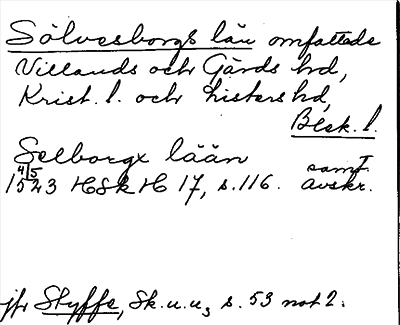 Sölvesborgs län omfattade
Villands och Gärds hrd,
Krist. l. och Listers hrd,
Blek. l.
Selborgx lään
4/5 samt.
1523 HSkH 17, s. 116. avskr.
jfr Styffe, Sk.u.u, s. 53 not 2.